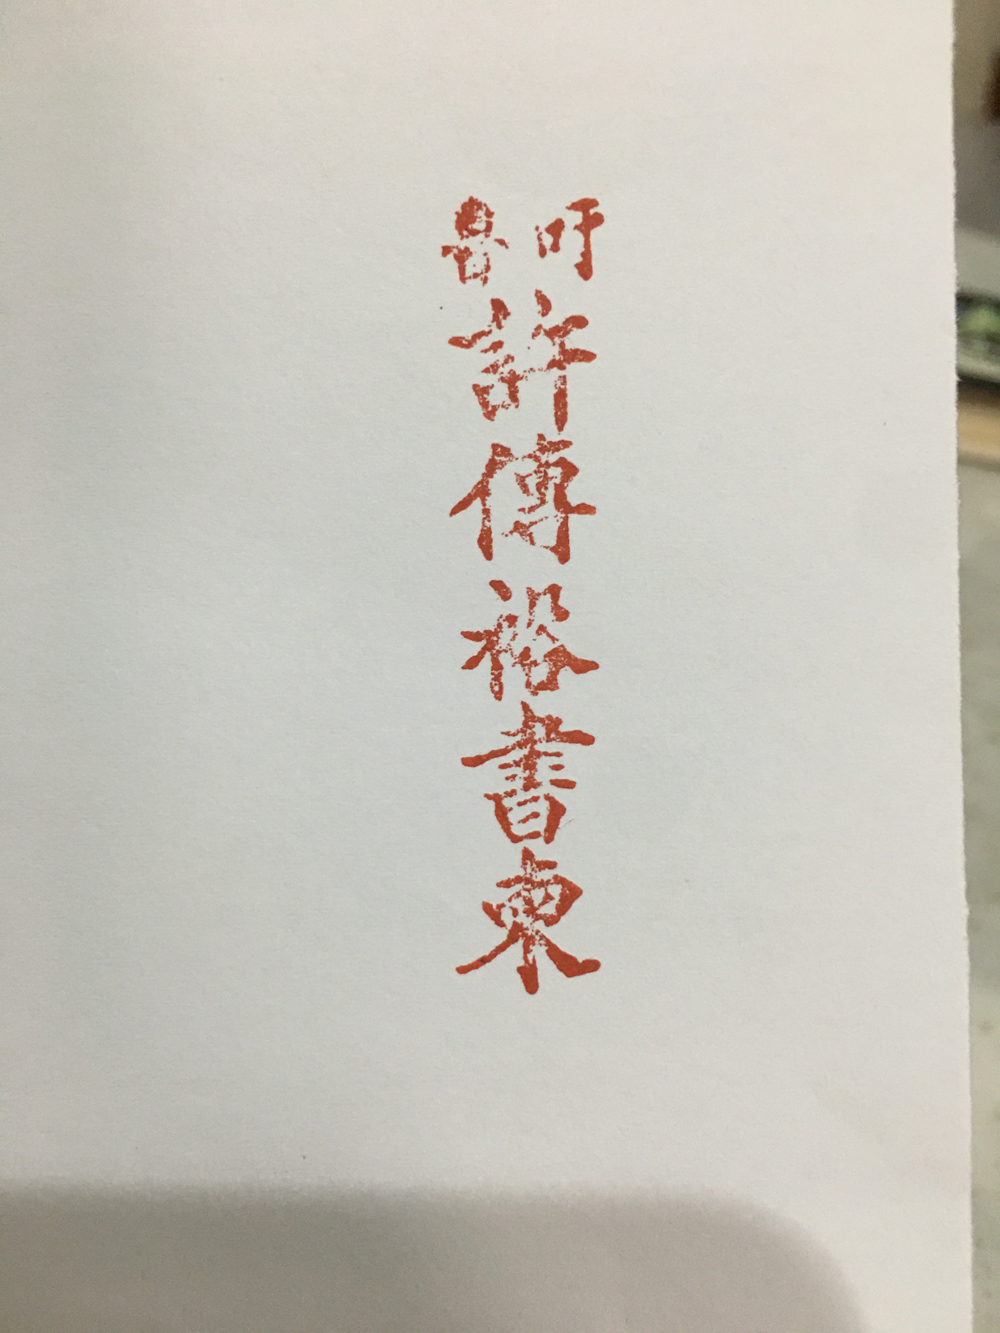 吁魯
許傳裕書柬